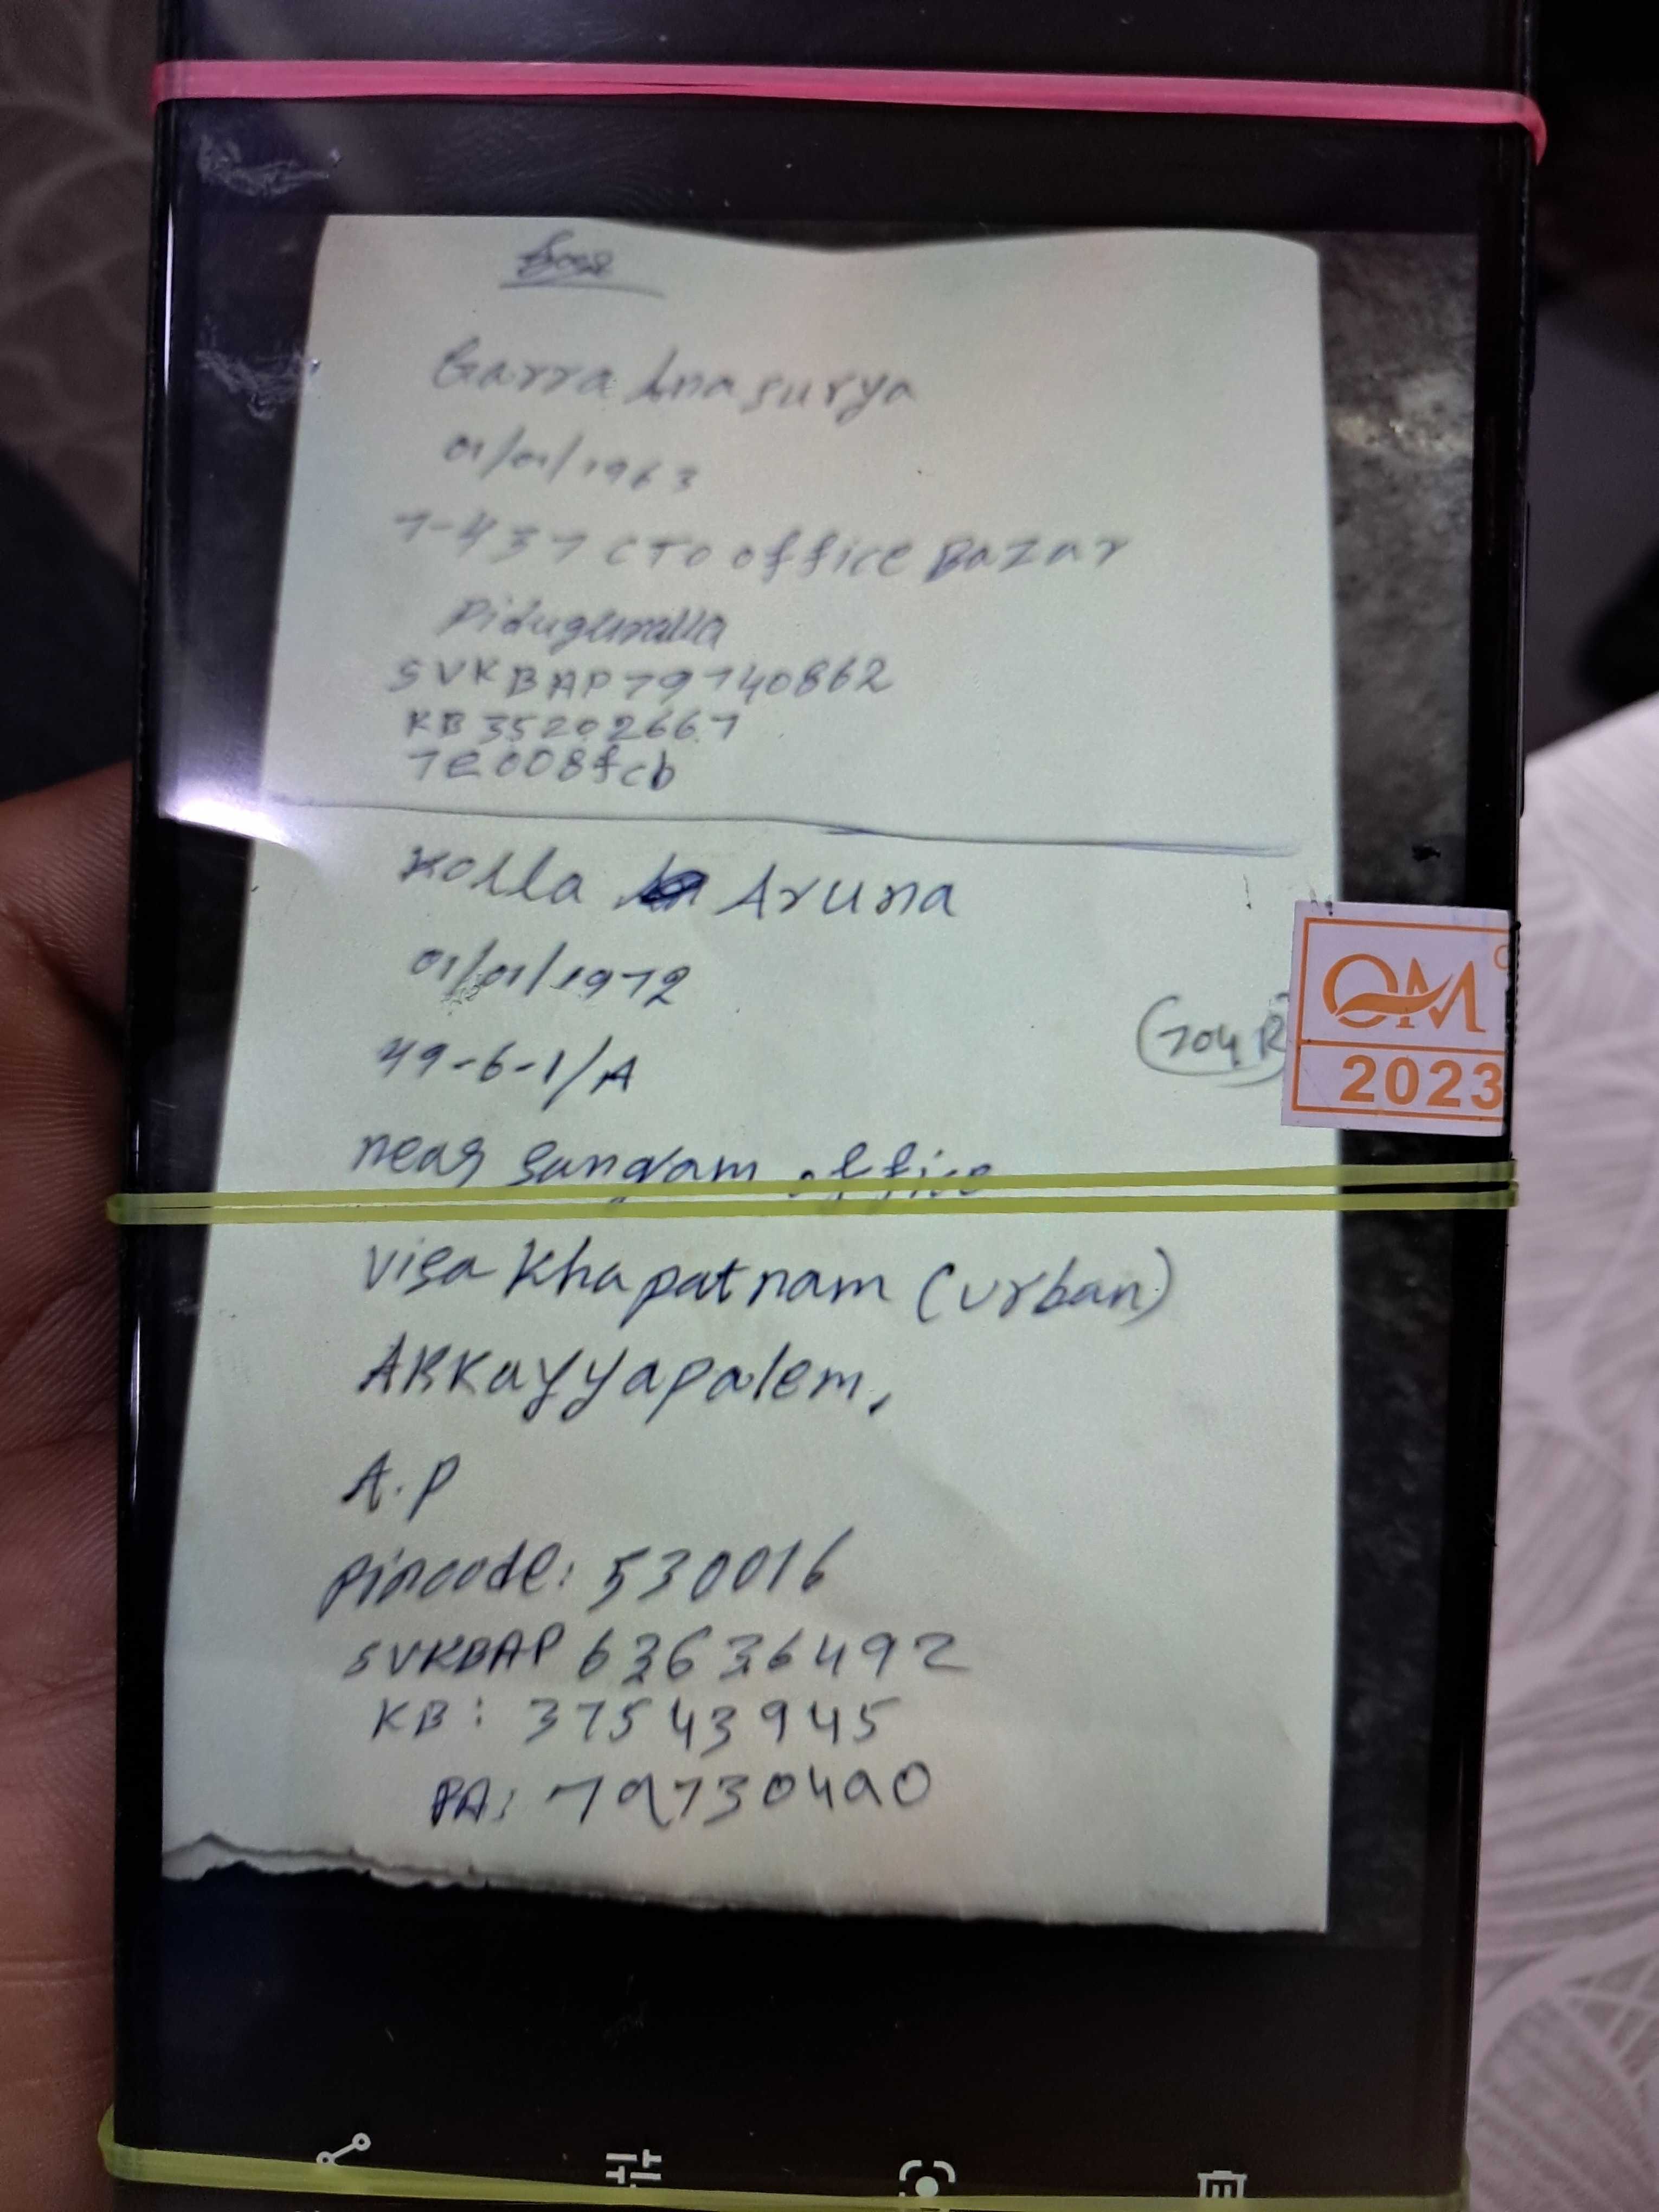 Garra Anasurya
01/01/1963
7-437 CTO office Bazar
Piduguralla
SVKBAP79740862
KB35202667
7e008fcb
Kolla Aruna
01/01/1972
49-6-1/A
704 R
near sangam office
visakhapatnam (urban)
AKKayyapalem,
A.P
pincode: 530016
SVKBAP 63636492
KB: 37543945
PA: 79730490
QM
2023